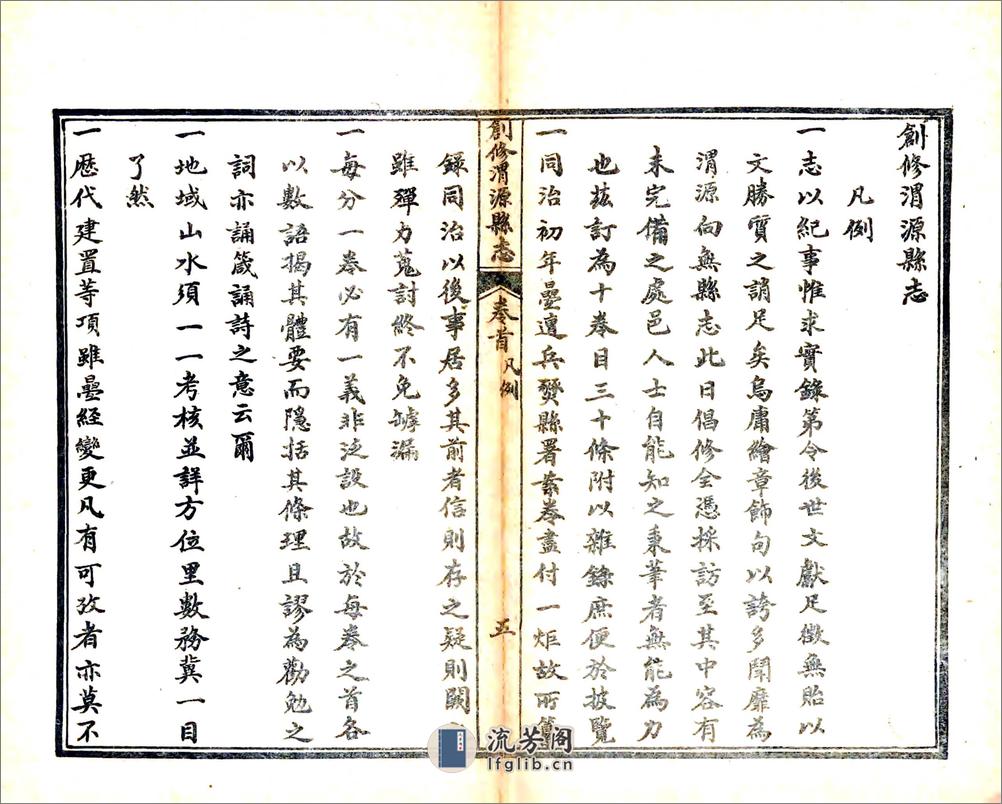 創修渭源縣志
凡例
一志以紀事惟求實錄第令後世文獻足徵無貽以
文勝質之誚足矣烏庸繪章飾句以誇多鬬靡為
渭源向無縣志此日倡修全憑採訪至其中容有
未完備之處邑人士自能知之秉筆者無能為力
也茲訂為十卷目三十條附以雜錄庶便於披覽
一同治初年曡遭兵燹縣署案卷盡付一炬故所
創修渭源縣志
卷首
凡例
五
錄同治以後事居多其前者信則存之疑則闕
雖殫力蒐討終不免罅漏
一每分一卷必有一義非泛設也故於每卷之首各
以數語揭其體要而隱括其條理且謬為勸勉之
詞亦誦箴誦詩之意云爾
一地域山水須一一考核並詳方位里數務冀一目
了然
一歷代建置等項雖曡經變更凡有可攷者亦莫不
流芳阁
lfglib.cn